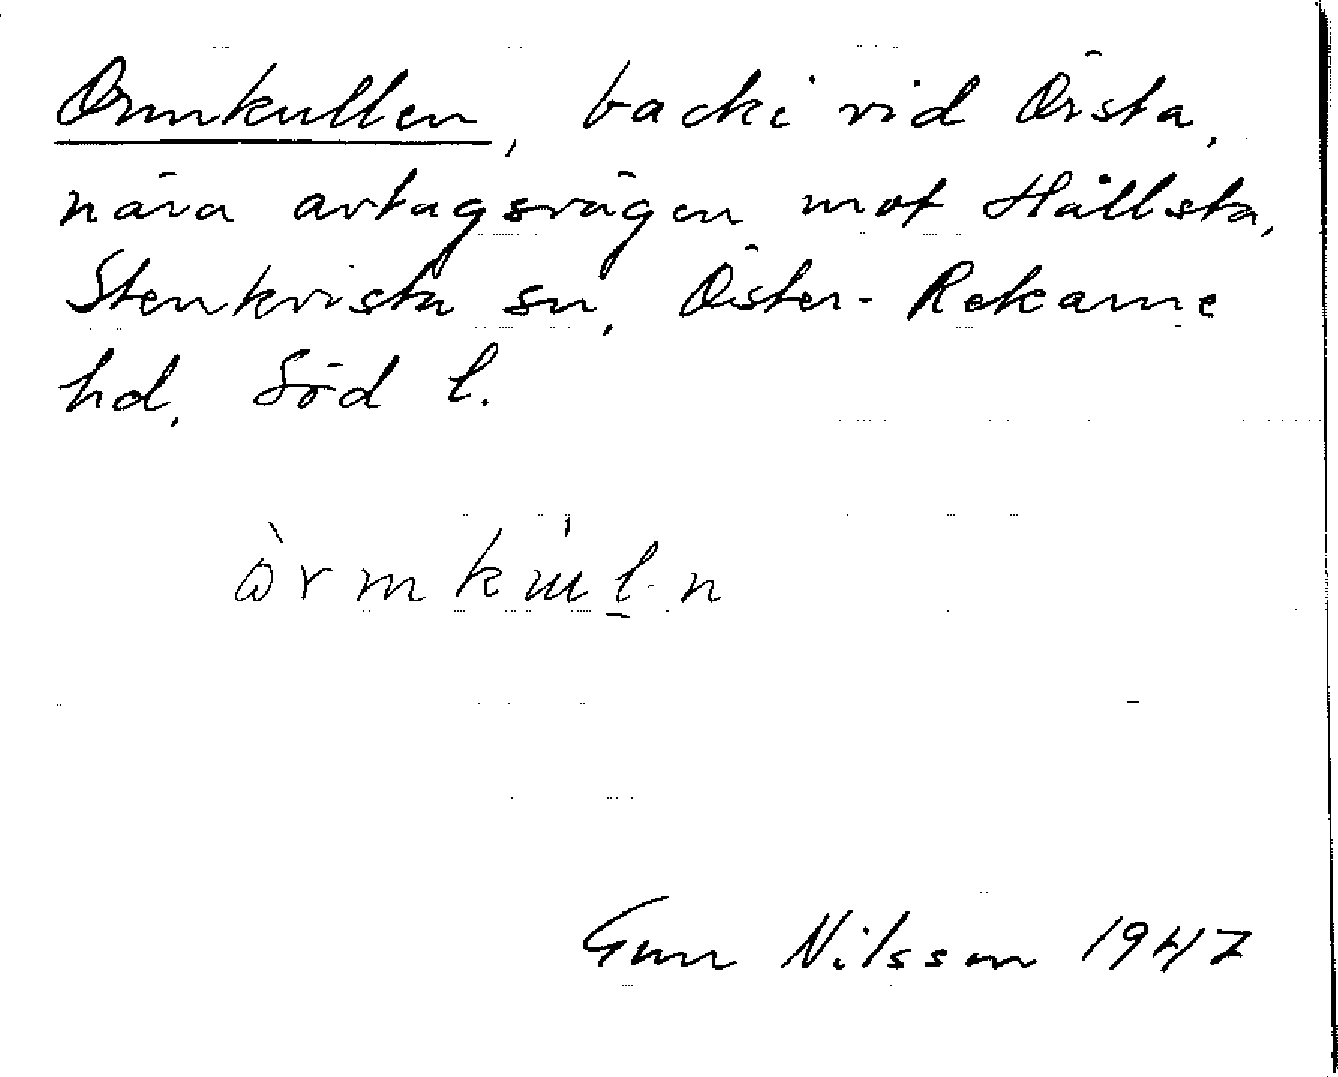 Ormkullen, backe vid Örsta,
nära avtagsvägen mot Hållsta,
Stenkvista sn, Öster-Rekarne
hd, Söd l.
Gun Nilsson 1947